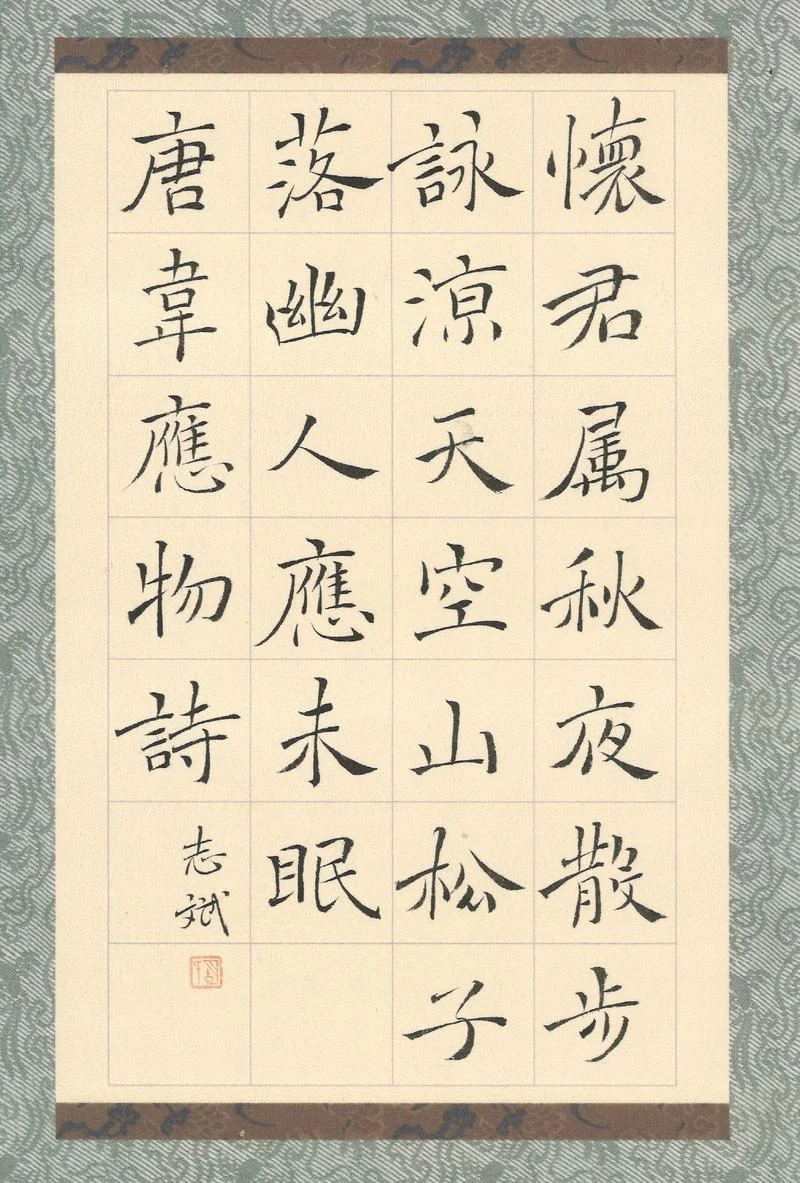 懷君属秋夜散步
詠涼天空山松子
落幽人應未眠
唐韋應物詩
志斌